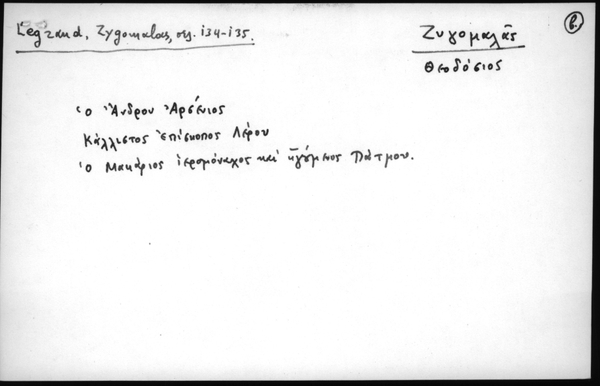 Legrand, Zygomalas, σελ. 134-135.
Ζυγομαλᾶς
β.
Θεοδόσιος
ὁ Ἄνδρου Ἀρσένιος
Κάλλιστος Ἐπίσκοπος Λέρου
ὁ Μακάριος ἱερομόναχος καὶ ἡγούμενος Πάτμου.